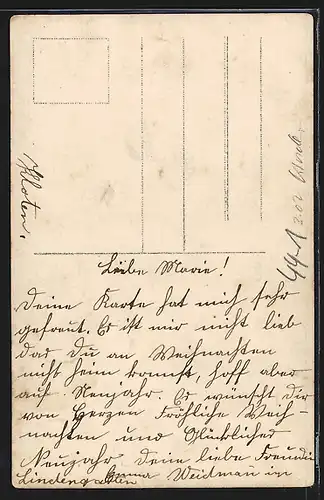 Kloten.
Liebe Marie!
Deine Karte hat mich sehr
gefreut. Es ist mir nicht lieb
das Du an Weihnachten
nicht heim kommst, hoff aber
auf Neujahr. Es wünscht Dir
von Herzen Fröhliche Weih-
nachten und Glückliches
Neujahr deine liebe Freundin
Emma Weidman in
Lindengarten